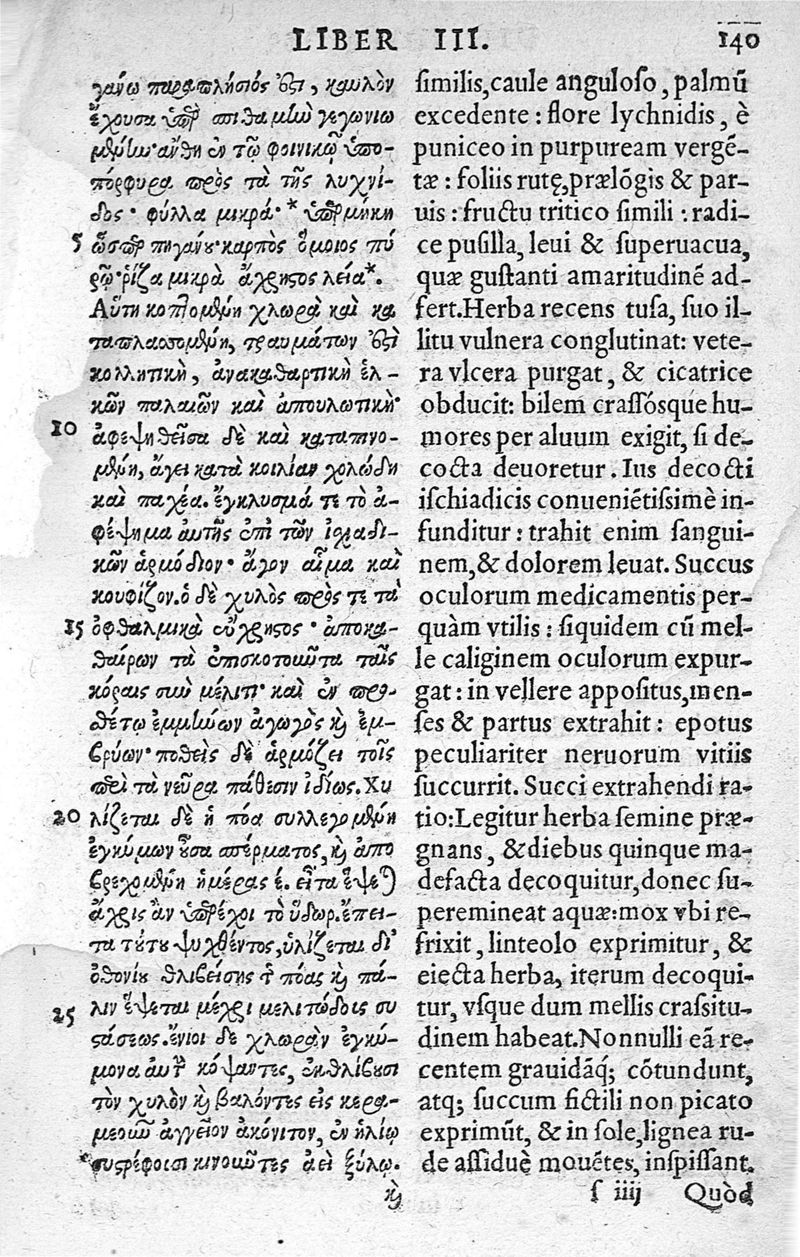 LIBER III. 140
γάνῳ παραπλήσιός ἐστι, καυλὸν
ἔχουσα ὑπὲρ σπιθαμὴν γεγωνιω
μένην· ἄνθη ἐν τῷ φοινικῷ ὑπο-
πόρφυρα πρὸς τὰ τῆς λυχνί-
δος· φύλλα μικρά· * ὑπερμήκη
5 ὥσπερ πηγάνου· καρπὸς ὅμοιος πύ
ρῳ· ῥίζα μικρὰ ἄχρηστος λεία*.
Αὕτη κοπτομένη χλωρὰ καὶ κα
ταπλασσομένη, τραυμάτων ἐστὶ
κολλητικὴ, ἀνακαθαρτικὴ ἑλ-
κῶν παλαιῶν καὶ ἀπουλωτικὴ·
10 ἀφεψηθεῖσα δὲ καὶ καταπινο-
μένη, ἄγει κατὰ κοιλίαν χολώδη
καὶ παχέα. ἔγκλυσμά τε τὸ ἀ-
φέψημα αὐτῆς ἐπὶ τῶν ἰσχιαδι-
κῶν ἁρμόδιον· ἄγον αἷμα καὶ
κουφίζον. ὁ δὲ χυλὸς πρὸς τε τὰ
15 ὀφθαλμικὰ εὔχρηστος· ἀποκα-
θαίρων τὰ ἐπισκοτοιῦτα ταῖς
κόραις σὺν μέλιτι· καὶ ἐν προσ-
θέτῳ ἐμμήνων ἀγωγὸς καὶ ἐμ-
βρύων· ποθεὶς δὲ ἁρμόζει τοῖς
περὶ τὰ νεῦρα πάθεσιν ἰδίως. Χυ
20 λίζεται δὲ ἡ πόα συλλεγομένη
ἐγκύμων οὖσα σπέρματος, καὶ ἀπο
βρεχομένη ἡμέρας ε. εἶτα ἕψεται
ἄχρις ἂν ὑπερέχοι τὸ ὕδωρ. ἔπει-
τα τούτου ψυχθέντος, ὑλίζεται δι᾽
ὀθονίου θλιβείσης τῆς πόας καὶ πά-
λιν ἕψεται μέχρι μελιτώδοις συ
25 στάσεως. ἔνιοι δὲ χλωρὰν ἐγκύ-
μονα αὐτὴν κόψαντες, ἐκθλίβουσι
τὸν χυλὸν καὶ βαλόντες εἰς κερα-
μεοῦν ἀγγεῖον ἀκόνιτον, ἐν ἡλίῳ
*συστρέφουσι κινοῦντες ἀεὶ ξύλῳ.
καὶ
similis, caule anguloso, palmũ
excedente: flore lychnidis, è
puniceo in purpuream vergẽ-
tæ: foliis rutę, prælõgis & par-
uis: fructu tritico simili: radi-
ce pusilla, leui & superuacua,
quæ gustanti amaritudinẽ ad-
fert. Herba recens tusa, suo il-
litu vulnera conglutinat: vete-
ra vlcera purgat, & cicatrice
obducit: bilem crassósque hu-
mores per aluum exigit, si de-
cocta deuoretur. Ius decocti
ischiadicis conueniẽtissimè in-
funditur: trahit enim sangui-
nem, & dolorem leuat. Succus
oculorum medicamentis per-
quàm vtilis: siquidem cũ mel-
le caliginem oculorum expur-
gat: in vellere appositus, men-
ses & partus extrahit: epotus
peculiariter neruorum vitiis
succurrit. Succi extrahendi ra-
tio: Legitur herba semine præ-
gnans, & diebus quinque ma-
defacta decoquitur, donec su-
peremineat aquæ: mox vbi re-
frixit, linteolo exprimitur, &
eiecta herba, iterum decoqui-
tur, vsque dum mellis crassitu-
dinem habeat. Nonnulli eã re-
centem grauidãq; cõtundunt,
atq; succum fictili non picato
exprimũt, & in sole, lignea ru-
de assiduè mouẽtes, inspissant.
s iiij Quòd